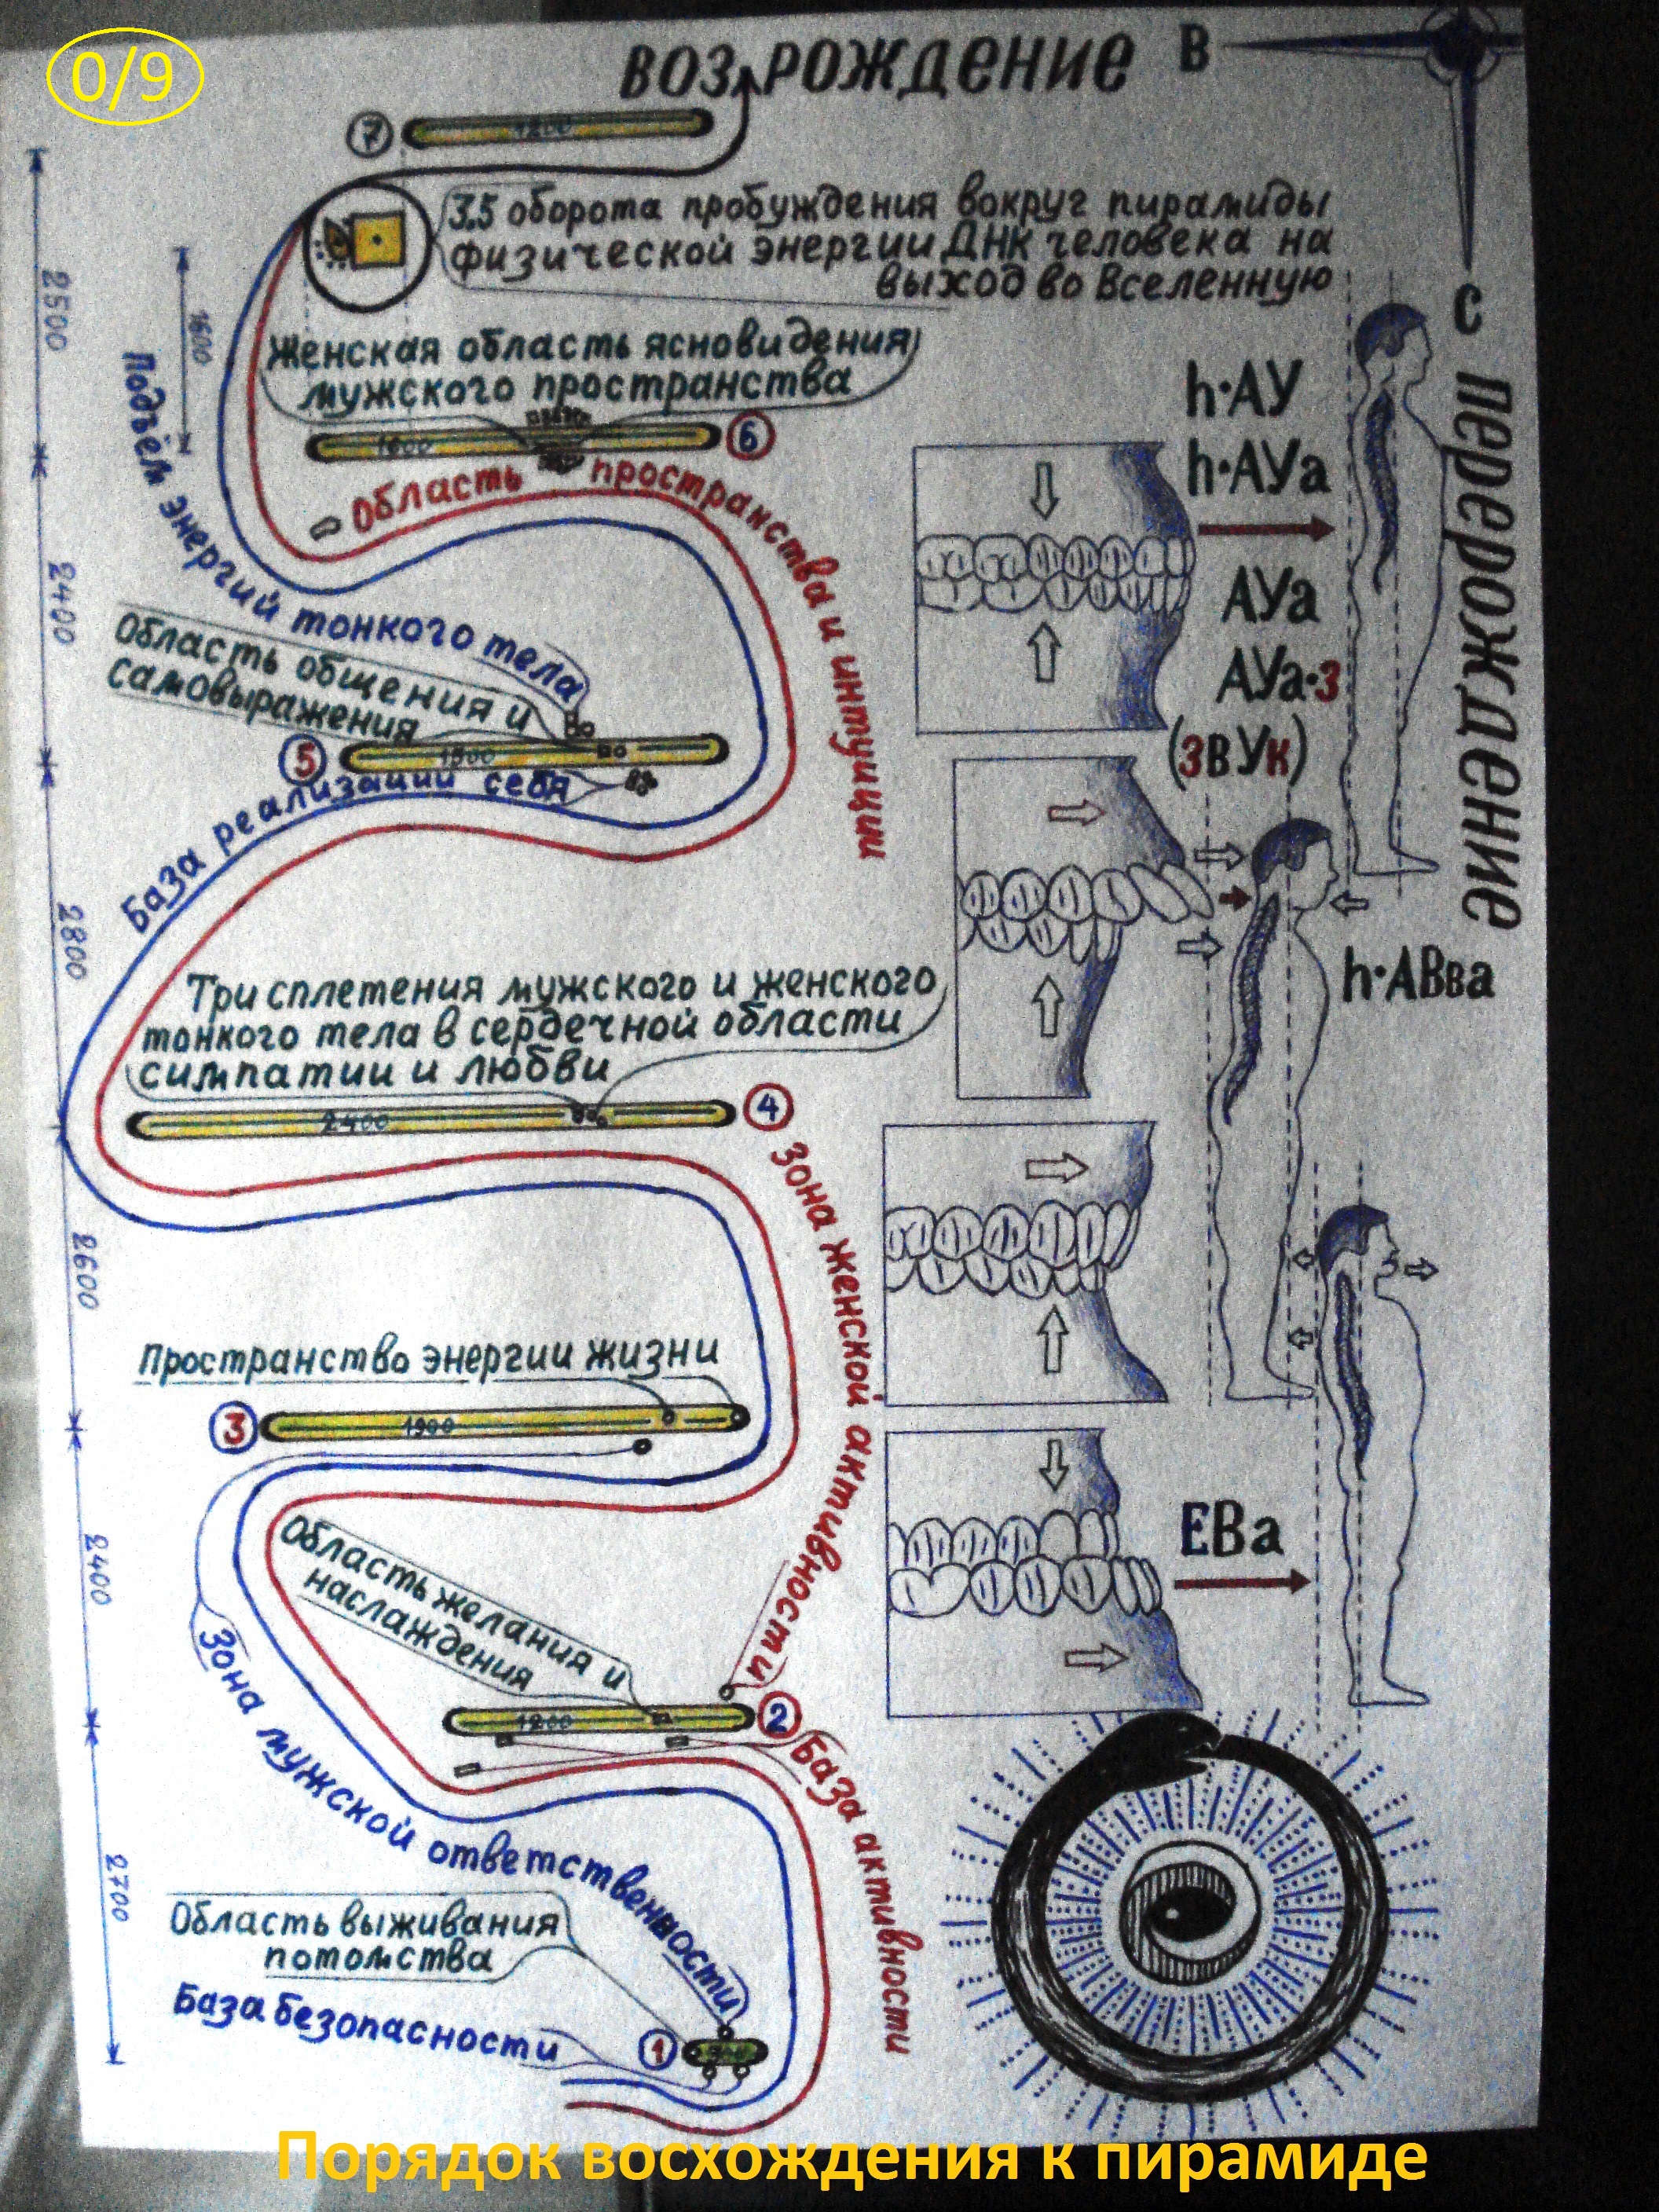 0/9
ВОЗРОЖДЕНИЕ
В
7
1200
3.5 оборота пробуждения вокруг пирамиды
физической энергии ДНК человека на
выход во Вселенную
С
перерождение
2500
1600
Женская область ясновидения
мужского пространства
1600
6
Область пространства и интуиции
Подъём энергий тонкого тела
2400
Область общения и
самовыражения
5
1500
База реализации себя
2800
Три сплетения мужского и женского
тонкого тела в сердечной области
симпатии и любви
2400
4
Зона женской активности
2600
Пространство энергии жизни
3
1900
2400
Область желания и
наслаждения
1200
2
База активности
Зона мужской ответственности
2700
Область выживания
потомства
База безопасности
1
h·АУ
h·АУа
АУа
АУа·з
(ЗВУК)
h·АВва
ЕВа
Порядок восхождения к пирамиде